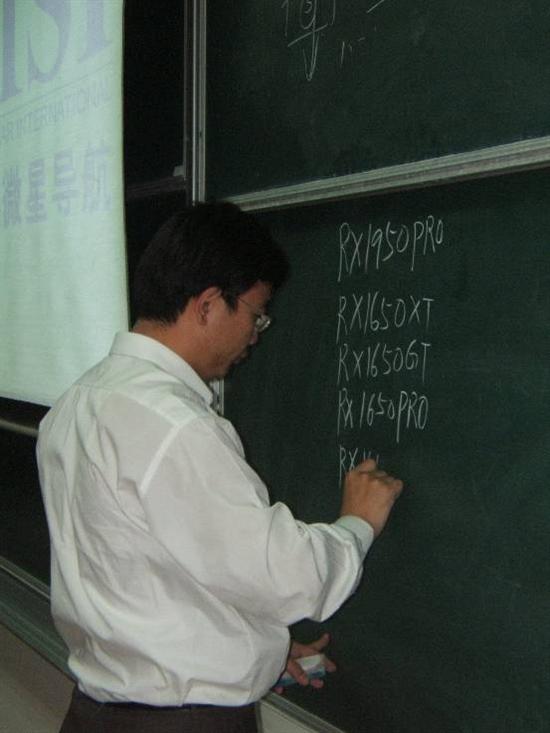 SI
AR INTERNATIONAL
微星导航
RX1950PRO
RX1650XT
RX1650GT
RX1650PRO
RX16